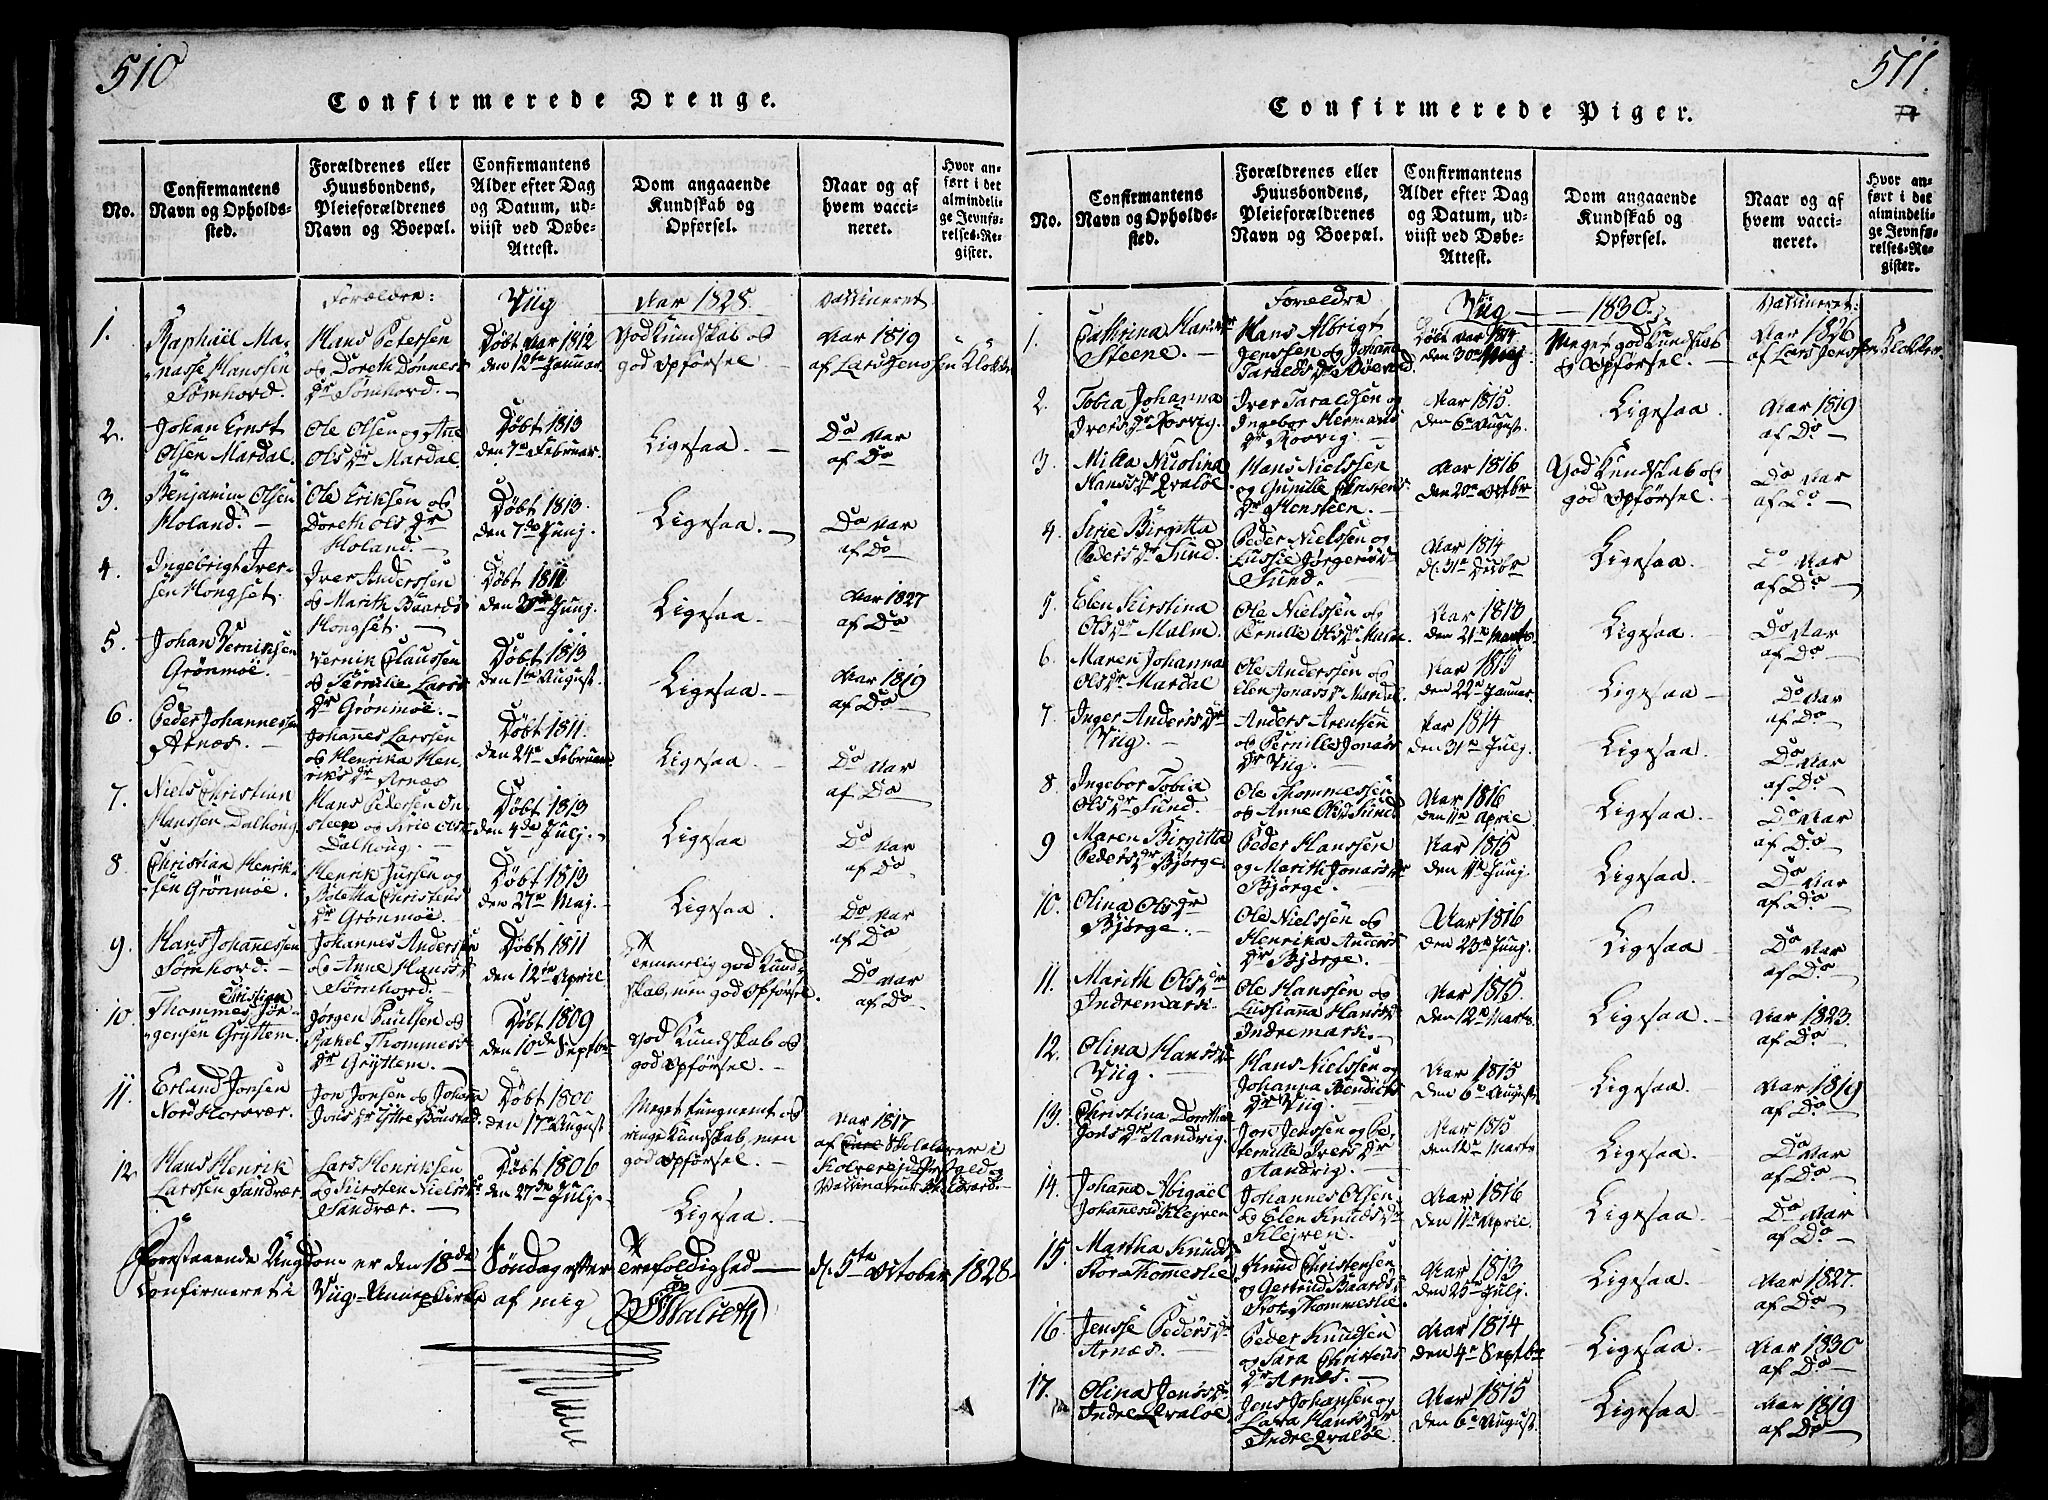 510
Confirmerede Drenge.
No.
Confirmantens
Navn og Opholds-
sted.
Forældrenes eller
Huusbondens,
Pleieforældrenes
Navn og Boepæl.
Confirmantens
Alder efter Dag
og Datum, ud-
viist ved Døbe-
Attest.
Dom angaaende
Kundskab og
Opførsel.
Naar og af
hvem vacci-
neret.
Hvor an-
ført i det
almindeli-
ge Jevnfø-
relses-Re-
gister.
Forældre:
Viig
Aar 1828.
Vaccineret
1.
Raphäel Ma-
nasse Hanssen
Sømhovd.
Hans Petersen
og Doreth Dønnes
Dr Sømhovd.
Døbt Aar 1812
den 12te Januar.
God Kundskab og
god Opførsel.
Aar 1819
af Lars Jenssen Klokker
2.
Johan Ernst
Olsen Mardal.
Ole Olsen og Ane
Ols Dr Mardal.
Døbt 1813
den 7de Februar.
Ligesaa.
Do Aar
af Do
3.
Benjamin Olsen
Holand.
Ole Eriksen og
Doreth Ols Dr
Holand.
Døbt 1813.
den 7de Junj.
Ligesaa.
Do Aar
af Do
4.
Ingebrigt Iver-
sen Hongset.
Iver Anderssen
og Marith Baards
Hongset.
Døbt 1811
Junj.
Ligesaa.
Aar 1827
af Do
5.
Johan Verniksen
Grønmoe.
Vernik Claussen
og Pernille Lars
Dr Grønmoe.
Døbt 1813
den 1te August.
Ligesaa.
Aar 1819
af Do
6.
Peder Johannessen
Arnæs.
Johannes Larssen
og Henrika Hen-
riks Dr Arnæs
Døbt 1811.
den 24de Februar
Ligesaa
Do Aar
af Do
7.
Niels Christian
Hanssen Dalhoug
Hans Pedersen On-
steen og Sirie Ols
Dalhoug.
Døbt 1813
den 4de Julj.
Ligesaa
Do Aar
af Do
8.
Christian Henrik-
sen Grønmoe.
Henrik Jussen og
Boletha Christens
Dr Grønmoe.
Døbt 1813
den 27de Maj.
Ligesaa.
Do Aar
af Do
9.
Hans Johannessen
Sømhovd.
Johannes Anderssen
og Anne Hans
Sømhovd.
Døbt 1811
den 12te April
Temmelig god Kund-
skab, men god Opførsel.
Do Aar
af Do
10.
Christian
Thommes Jør-
gensen Gryttem.
Jørgen Paulsen og
Rakel Thommes
Dr Gryttem.
Døbt 1809
den 10de Septbr
God Kundskab og
god Opførsel.
11.
Erland Jonsen
Nord Horsvær.
Jon Jonsen og Johana
Jons Dr Ytre Bonstad.
Døbt 1800
den 17de August
Meget tungnemt og
ringe Kundskab, men
god Opførsel.
Aar 1817
af i
12
Hans Henrik
Larssen Sandvær.
Lars Henriksen
og Kirsten Niels
Sandvær.
Døbt 1806
den 27de Julj.
Ligesaa.
Forestaaende Ungdom er den 18de Søndag efter Trefoldighed d. 5te October 1828
Confirmeret i Viig-Annex Kirke af mig
511.
Confirmerede Piger.
No.
Confirmantens
Navn og Opholds-
sted.
Forældrenes eller
Huusbondens,
Pleieforældrenes
Navn og Boepæl.
Confirmantens
Alder efter Dag
og Datum, ud-
viist ved Døbe-
Attest.
Dom angaaende
Kundskab og
Opførsel.
Naar og af
hvem vacci-
neret.
Hvor an-
ført i det
almindeli-
ge Jevnfø-
relses-Re-
gister.
Forældre
Viig
1830.
Vaccineret:
1.
Cathrina Hans
Steene.
Hans Albrigt
Jenssen og Johana
Taralds Dr
Døbt Aar 1814
den 30te Maj.
Meget god Kundskab
og Opførsel.
Aar 1826
af Lars Jenssen Klokker
2.
Tobia Johanna
Ivers Dr Rosvig.
Iver Taraldsen og
Ingebor Hermans
Dr Rosvig.
Aar 1815.
den 6te August.
Ligesaa.
Aar 1819
af Do
3.
Milla Nicolina
Hans Dr Qvaløe.
Hans Nielssen
og Gunille Christens
Dr Hensteen.
Aar 1816
den 20de Octbr
God Kundskab og
god Opførsel.
Do Aar
af Do
4.
Sirie Birgitta
Peders Dr Sund.
Peder Nielssen og
Lussie Jørgens
Sund.
Aar 1814
d. 31te Decbr
Ligesaa.
Do Aar
af Do
5.
Elen Kirstina
Ols Dr Malm.
Ole Nielssen og
Pernille Ols Dr Malm.
Aar 1813
den 21de Marts.
Ligesaa.
Do Aar
af Do
6.
Maren Johanna
Ols Dr Mardal
Ole Anderssen og
Elen Jonas Dr Mardal.
Aar 1815
den 22de Januar.
Ligesaa
Do Aar
af Do
7.
Inger Anders Dr
Viig.
Anders Arentsen
og Pernille Jonas
Dr Viig.
Aar 1814
den 31te Julj.
Ligesaa
Do Aar
af Do
8
Ingebor Tobia
Ols Dr Sund.
Ole Thommessen
og Anne Ols Dr Sund
Aar 1816
den 11te April
Ligesaa.
Do Aar
af Do
9
Maren Birgitta
Peders Dr Bjørge.
Peder Hanssen
og Marith Jonas Dr
Bjørge.
Aar 1815
den 11te Junj.
Ligesaa.
Do Aar
af Do
10.
Olina Ols Dr
Bjørge.
Ole Nielssen og
Henrika Anders
Dr Bjørge.
Aar 1816
den 23de Junj.
Ligesaa
Do Aar
af Do
11.
Marith Ols Dr
Indremark.
Ole Hanssen og
Lussianna Hans
Indremark.
Aar 1815.
den 12te Marts.
Ligesaa.
Aar 1823.
af Do
12.
Olina Hans Dr
Viig.
Hans Nielssen og
Johanna Bendicts
Dr Viig.
Aar 1815
den 6te August
Ligesaa.
Aar 1819
af Do
13.
Christina Dorothea
Jons Dr Sandvig.
Jon Jenssen og Pe-
rnille Ivers Dr
Sandvig.
Aar 1815
den 12te Marts
Ligesaa.
Do Aar
af Do
14.
Johana Abigael
Johannes Dr Klejven
Johannes Olsen
og Elen Knuds Dr
Klejven.
Aar 1816
den 11te April.
Ligesaa.
Do Aar
af Do
15.
Martha Knuds
Stor Thommeslie
Knud Christensen
og Gertrud Baards
Stor Thommeslie.
Aar 1813
den 25de Julj.
Ligesaa.
Aar 1827.
af Do
16.
Jensse Peders Dr
Arnæs.
Peder Knudsen
og Sara Christens
Dr Arnæs.
Aar 1814
den 4de Septbr
Ligesaa
Aar 1830
af Do
17.
Olina Jens Dr
Indre Qvaløe.
Jens Johansen og
Lava Hans Dr
Indre Qvaløe.
Aar 1815
den 6te August.
Ligesaa
Aar 1819
af Do